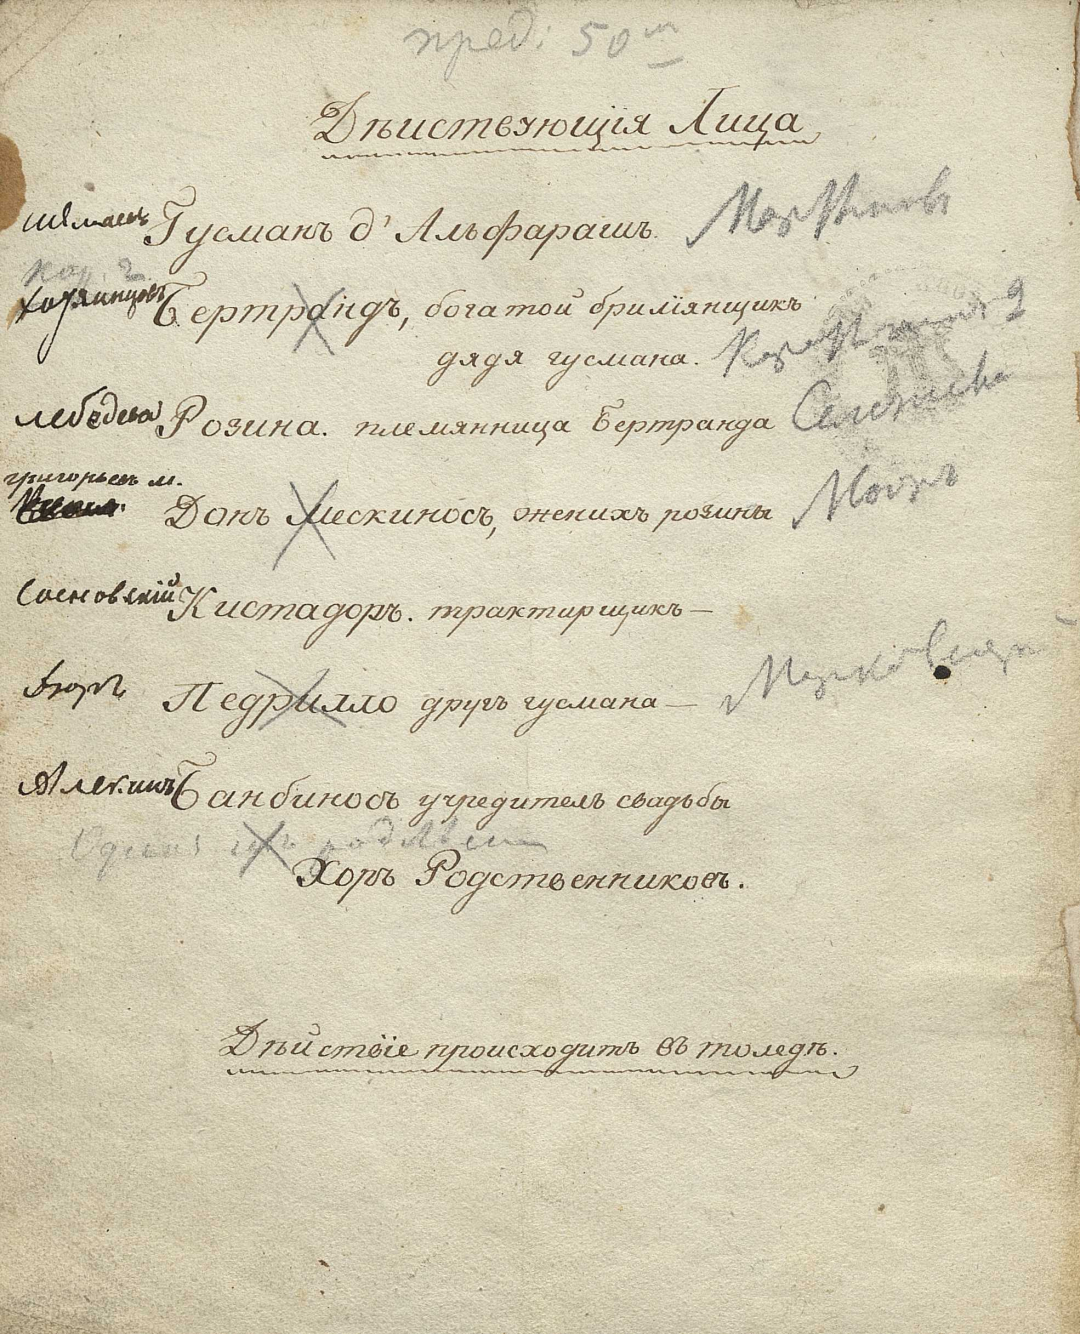 пред: 50
Дѣиствующія Лица
Шемаевъ Гусманъ д'Альфарашъ. Мартыновъ
Хотяинцовъ Бертрандъ, богатой брилiянщикъ
дядя гусмана.
Лебедева Розина. племянница Бертранда
григорьевъ м.
Донъ Мескиносъ, женихъ розины
Сосновскій Кистадоръ. трактирщикъ—
Педрилло другъ гусмана—
Алекинъ Банбиносъ учредитель свадьбы
Хоръ Родственниковъ.
Дѣйствіе происходитъ въ толедѣ.